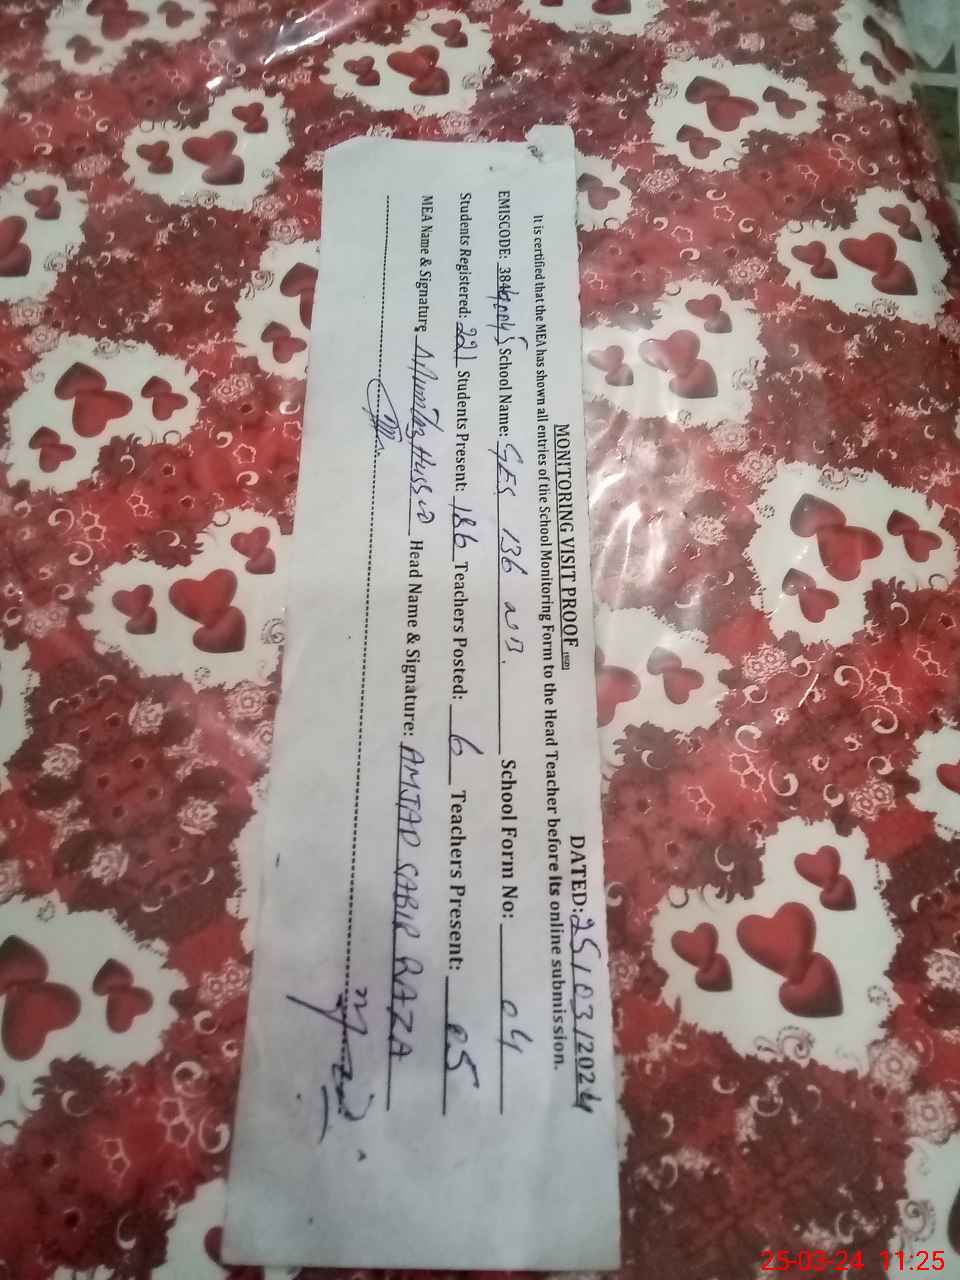 MONITORING VISIT PROOF (SED) DATED: 25/03/2024
It is certified that the MEA has shown all entries of the School Monitoring Form to the Head Teacher before its online submission.
EMISCODE: School Name: GES 136 School Form No: 04
Students Registered: 221 Students Present: 186 Teachers Posted: 6 Teachers Present: 05
MEA Name & Signature Mumtaz Hussain Head Name & Signature: AMJAD SABIR RAZA
25-03-24 11:25